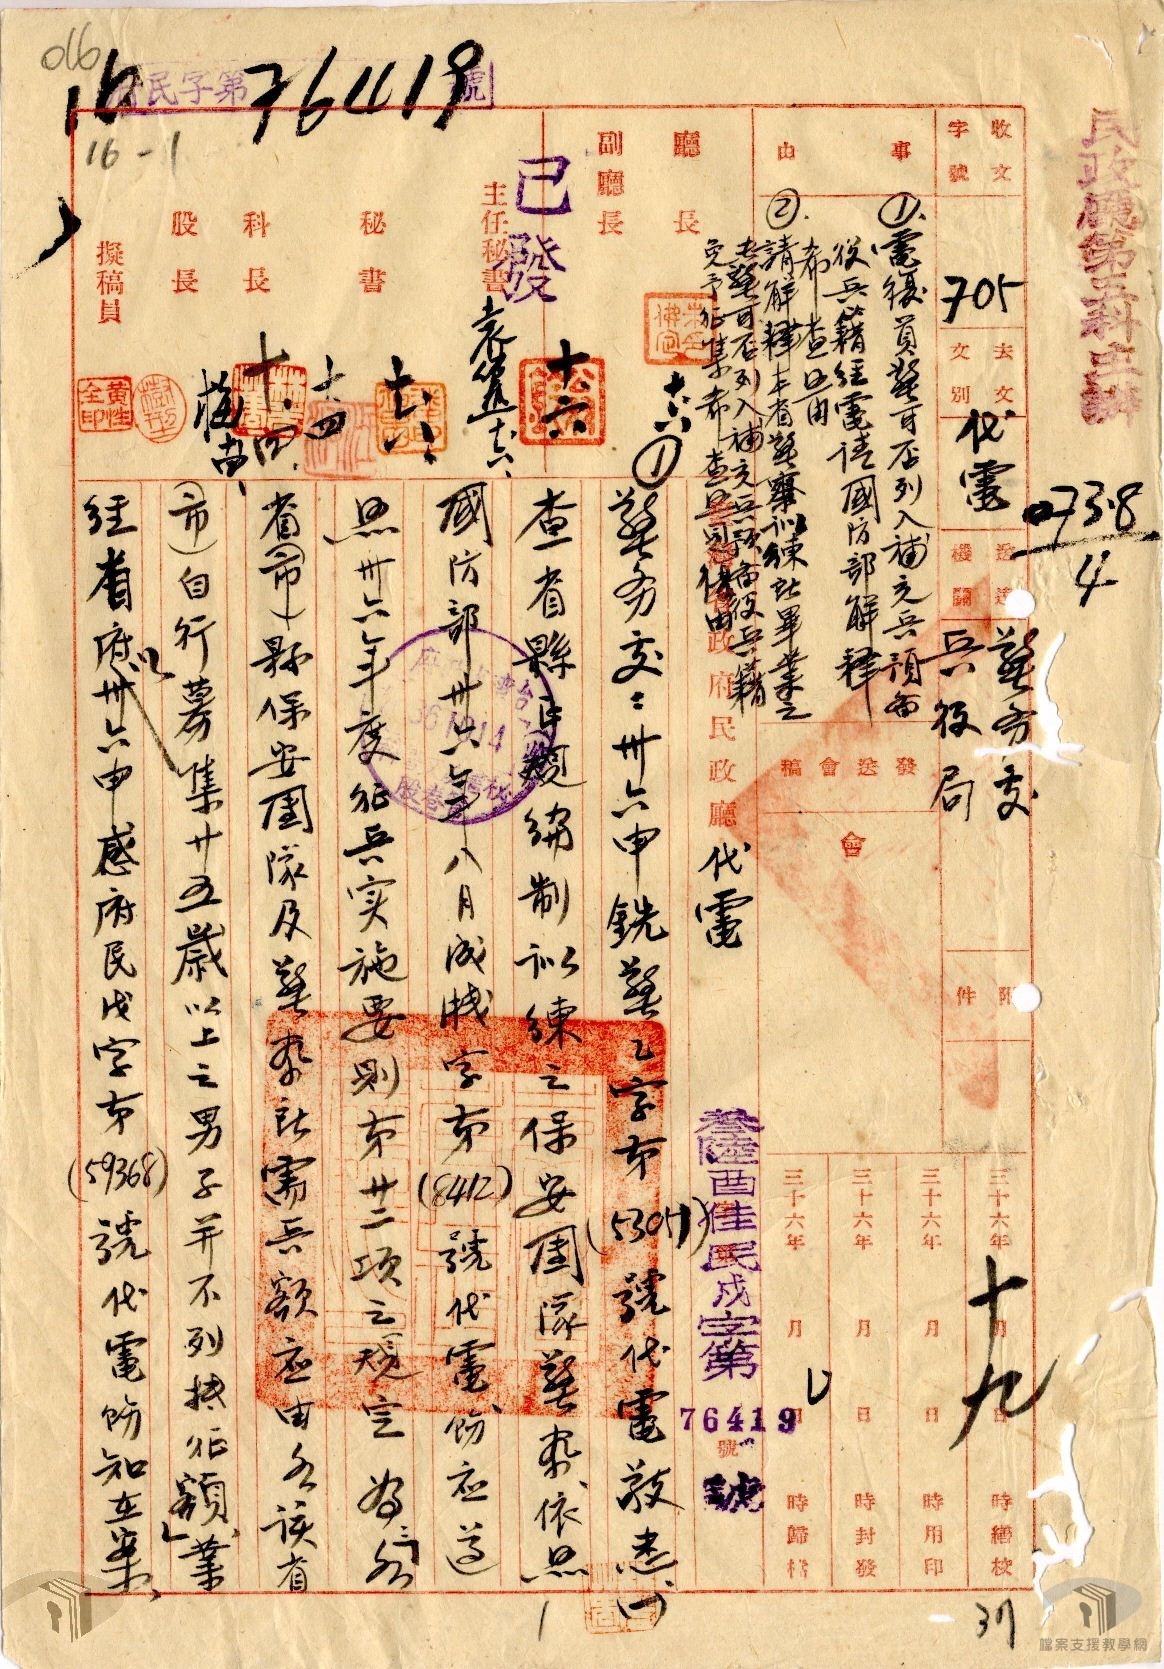 016
16 76419 號
府民字第
16-1
民政廳第五科主辦
收文 字號
705
去文 文別
代電
送達 機關
警務處
兵役局
附件
0738/4
事由
①電復員警可否列入補充兵預備
役兵籍經電請國防部解釋
希查照由
②請解釋本省警察訓練班畢業之
員警可否列入補充兵預備役兵籍
免予征集希查照見復由
廳長
副廳長
已發
主任秘書
秘書
科長
股長
擬稿員
黃性全印
發送會稿
會
三十六年 月 日 時繕校
三十六年 月 日 時用印
三十六年 月 日 時封發
三十六年 月 日 時歸檔
十九
政府民政廳代電
叁陸酉佳民戍字第
76419
號
36.10.14
①警務處:卅六申銑警乙字第(53057)號代電敬悉(一)
查省縣良規編制訓練之保安團隊警察依照
國防部卅六年八月成賤字第(8412)號代電飭應遵
照卅六年度征兵實施要則第廿二項之規定為「各
省(市)縣保安團隊及警察所需兵額應由各該省
(市)自行募集廿五歲以上之男子并不列抵征額」業
經省府以卅六申感府民戍字第(59368)號代電飭知在案
39
檔案支援教學網